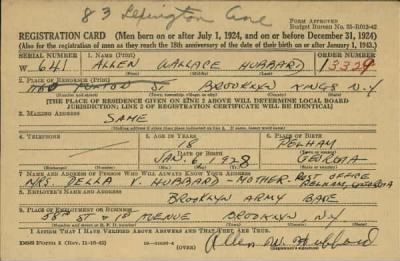 83 Lexington Ave
FORM APPROVED
Budget Bureau No. 33-R013-42
REGISTRATION CARD (Men born on or after July 1, 1924, and on or before December 31, 1924)
(Also for the registration of men as they reach the 18th anniversary of the date of their birth on or after January 1, 1943.)
SERIAL NUMBER 1. NAME (Print) ORDER NUMBER
W 641 ALLEN WALLACE HUBBARD 13329
(First) (Middle) (Last)
2. PLACE OF RESIDENCE (Print)
ST BROOKLYN KINGS N.Y
(Number and street) (Town, township, village, or city) (County) (State)
[THE PLACE OF RESIDENCE GIVEN ON LINE 2 ABOVE WILL DETERMINE LOCAL BOARD
JURISDICTION; LINE 2 OF REGISTRATION CERTIFICATE WILL BE IDENTICAL]
3. MAILING ADDRESS
SAME
[Mailing address if other than place indicated on line 2. If same, insert word same]
4. TELEPHONE 5. AGE IN YEARS 6. PLACE OF BIRTH
18 PELHAM
DATE OF BIRTH (Town or county)
JAN. 6 1928 GEORGIA
(Exchange) (Number) (Mo.) (Day) (Yr.) (State or country)
7. NAME AND ADDRESS OF PERSON WHO WILL ALWAYS KNOW YOUR ADDRESS POST OFFICE
MRS. V. HUBBARD - MOTHER - PELHAM, GEORGIA
8. EMPLOYER'S NAME AND ADDRESS
BROOKLYN ARMY BASE
9. PLACE OF EMPLOYMENT OR BUSINESS
58TH ST & 1ST AVENUE BROOKLYN, N.Y
(Number and street or R. F. D. number) (Town) (County) (State)
I AFFIRM THAT I HAVE VERIFIED ABOVE ANSWERS AND THAT THEY ARE TRUE.
DSS Form 1 (Rev. 11-16-42) Allen W. Hubbard